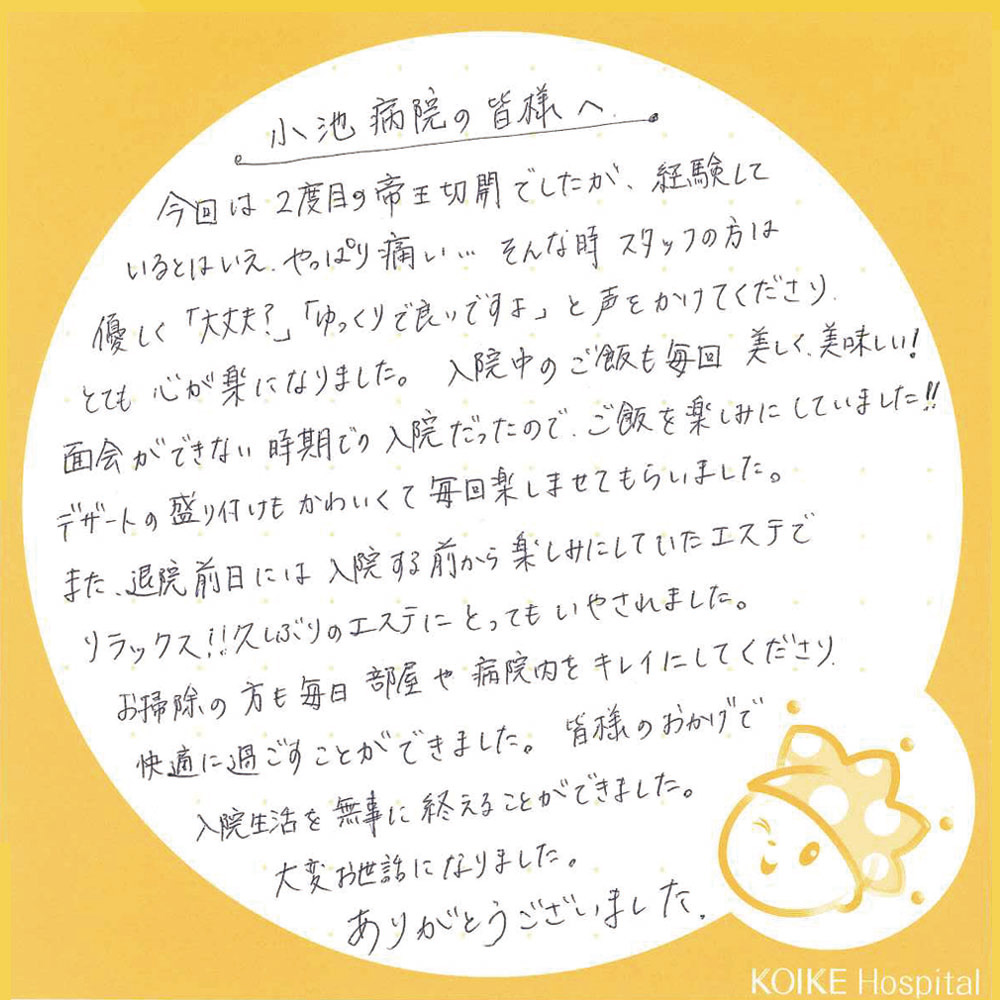 小池病院の皆様へ
今回は2度目の帝王切開でしたが、経験して
いるとはいえ、やっぱり痛い… そんな時 スタッフの方は
優しく「大丈夫?」「ゆっくりで良いですよ」と声をかけてくださり、
とても 心が楽になりました。 入院中の ご飯も毎回 美しく、美味しい!
面会ができない 時期での 入院だったので、ご飯を楽しみにしていました!!
デザートの盛り付けも かわいくて 毎回楽しませてもらいました。
また、退院前日には 入院する前から楽しみにしていたエステで
リラックス!!久しぶりのエステに とってもいやされました。
お掃除の方も毎日 部屋や病院内をキレイにしてくださり、
快適に過ごすことができました。 皆様のおかげで
入院生活を無事に終えることができました。
大変お世話になりました。
ありがとうございました.
KOIKE Hospital